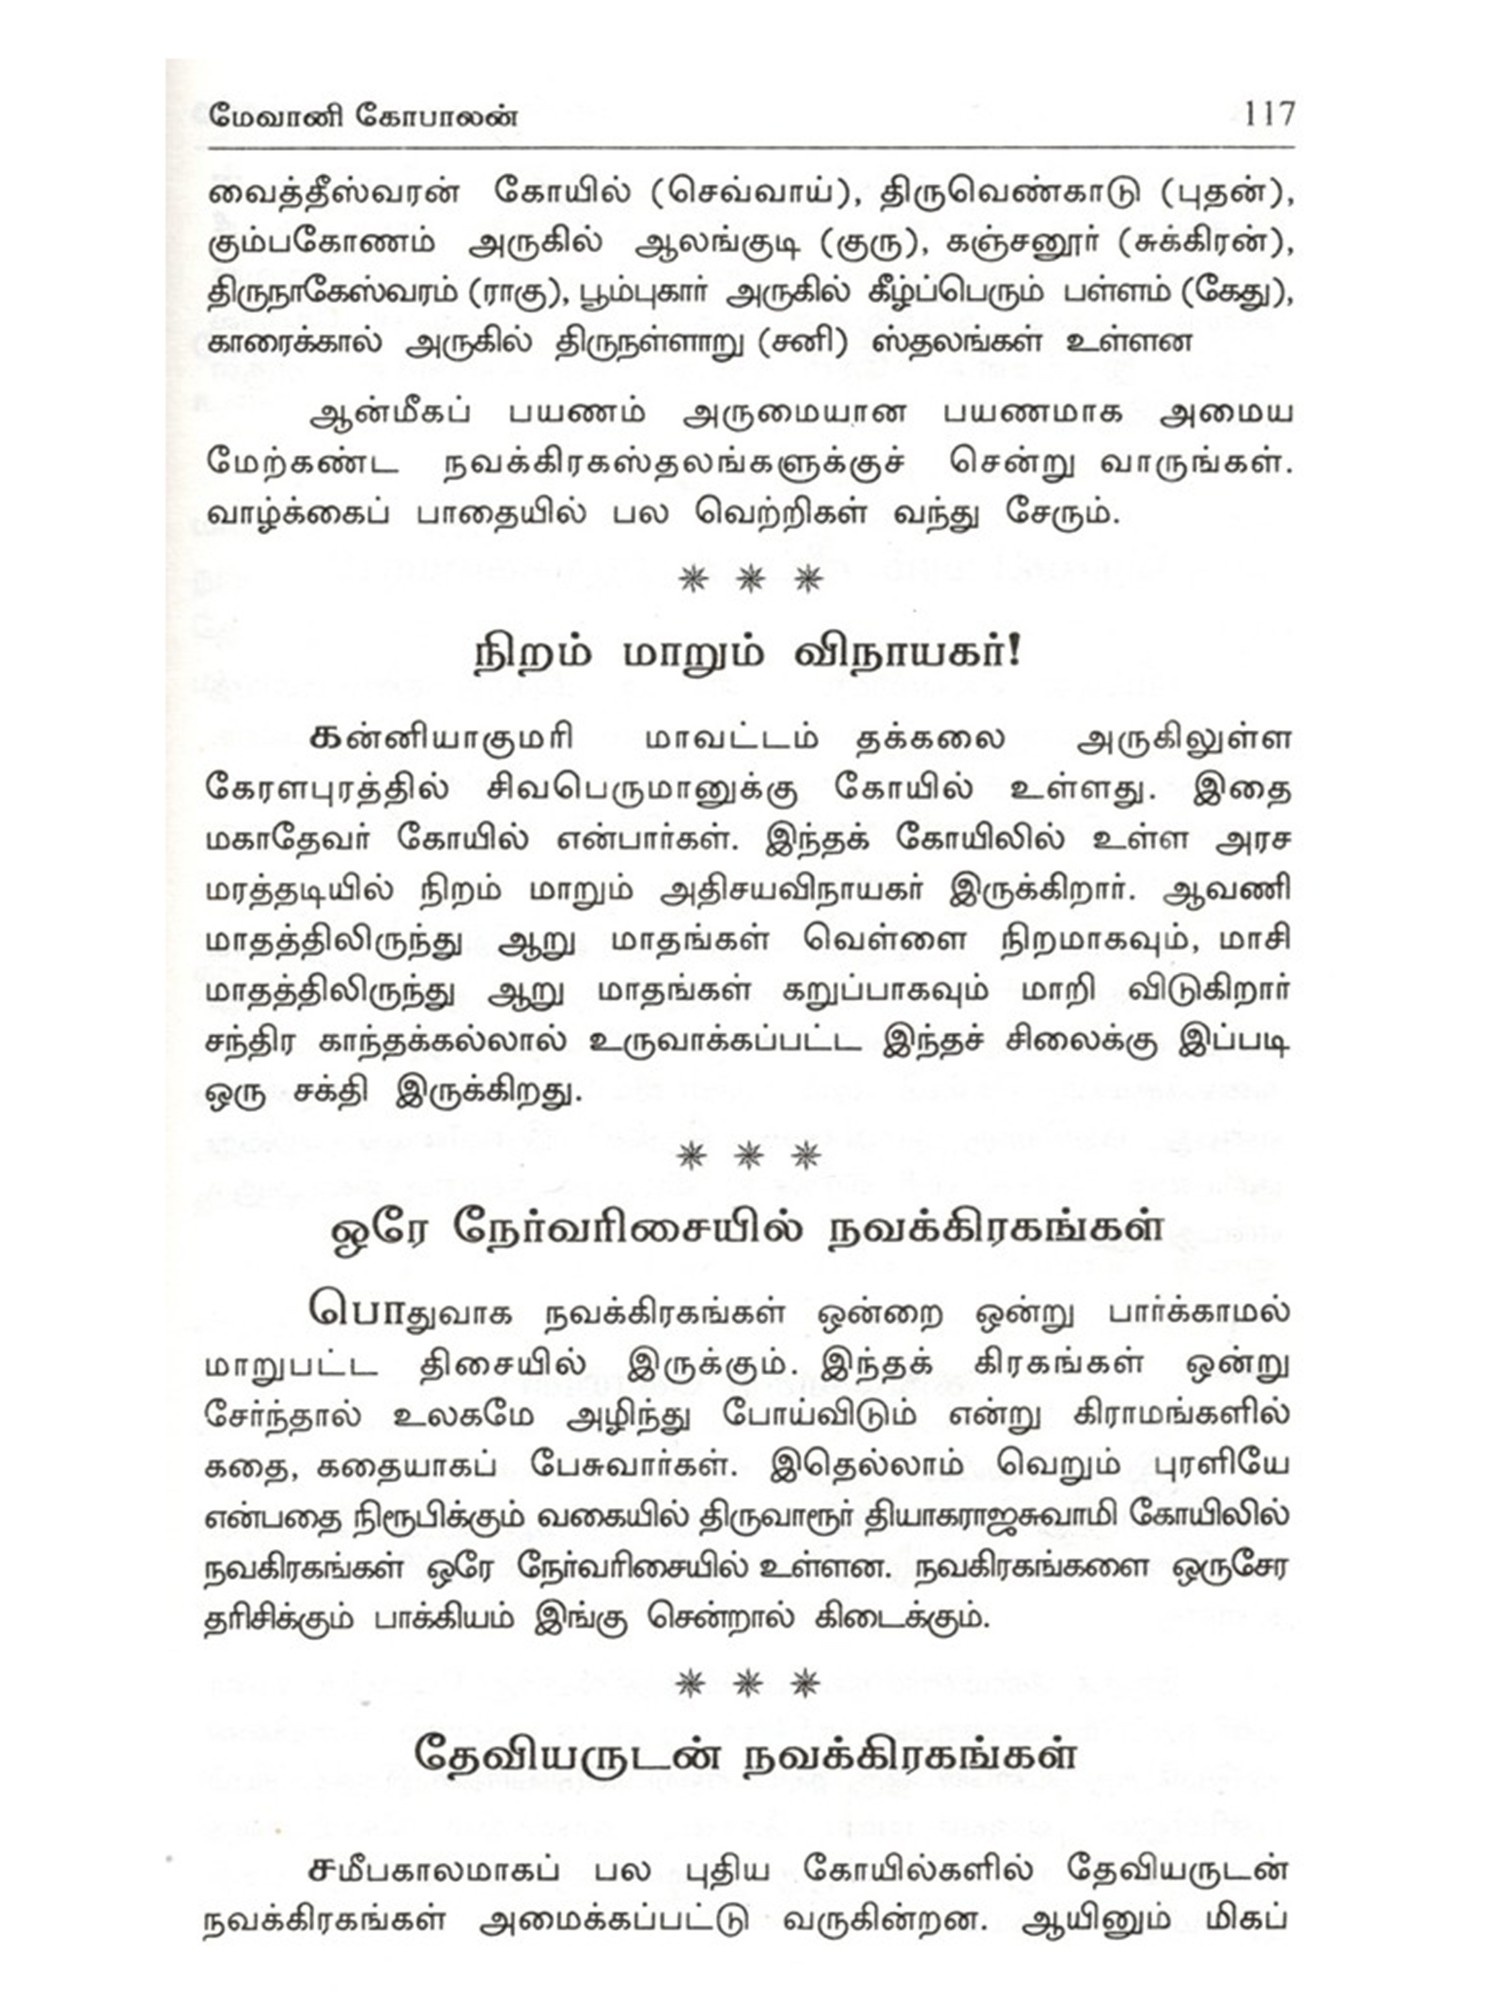 மேவானி கோபாலன் 117
வைத்தீஸ்வரன் கோயில் (செவ்வாய்), திருவெண்காடு (புதன்),
கும்பகோணம் அருகில் ஆலங்குடி (குரு), கஞ்சனூர் (சுக்கிரன்),
திருநாகேஸ்வரம் (ராகு), பூம்புகார் அருகில் கீழ்ப்பெரும் பள்ளம் (கேது),
காரைக்கால் அருகில் திருநள்ளாறு (சனி) ஸ்தலங்கள் உள்ளன
ஆன்மீகப் பயணம் அருமையான பயணமாக அமைய
மேற்கண்ட நவக்கிரகஸ்தலங்களுக்குச் சென்று வாருங்கள்.
வாழ்க்கைப் பாதையில் பல வெற்றிகள் வந்து சேரும்.
✴ ✴ ✴
நிறம் மாறும் விநாயகர்!
கன்னியாகுமரி மாவட்டம் தக்கலை அருகிலுள்ள
கேரளபுரத்தில் சிவபெருமானுக்கு கோயில் உள்ளது. இதை
மகாதேவர் கோயில் என்பார்கள். இந்தக் கோயிலில் உள்ள அரச
மரத்தடியில் நிறம் மாறும் அதிசயவிநாயகர் இருக்கிறார். ஆவணி
மாதத்திலிருந்து ஆறு மாதங்கள் வெள்ளை நிறமாகவும், மாசி
மாதத்திலிருந்து ஆறு மாதங்கள் கறுப்பாகவும் மாறி விடுகிறார்
சந்திர காந்தக்கல்லால் உருவாக்கப்பட்ட இந்தச் சிலைக்கு இப்படி
ஒரு சக்தி இருக்கிறது.
✴ ✴ ✴
ஒரே நேர்வரிசையில் நவக்கிரகங்கள்
பொதுவாக நவக்கிரகங்கள் ஒன்றை ஒன்று பார்க்காமல்
மாறுபட்ட திசையில் இருக்கும். இந்தக் கிரகங்கள் ஒன்று
சேர்ந்தால் உலகமே அழிந்து போய்விடும் என்று கிராமங்களில்
கதை, கதையாகப் பேசுவார்கள். இதெல்லாம் வெறும் புரளியே
என்பதை நிரூபிக்கும் வகையில் திருவாரூர் தியாகராஜசுவாமி கோயிலில்
நவகிரகங்கள் ஒரே நேர்வரிசையில் உள்ளன. நவகிரகங்களை ஒருசேர
தரிசிக்கும் பாக்கியம் இங்கு சென்றால் கிடைக்கும்.
✴ ✴ ✴
தேவியருடன் நவக்கிரகங்கள்
சமீபகாலமாகப் பல புதிய கோயில்களில் தேவியருடன்
நவக்கிரகங்கள் அமைக்கப்பட்டு வருகின்றன. ஆயினும் மிகப்